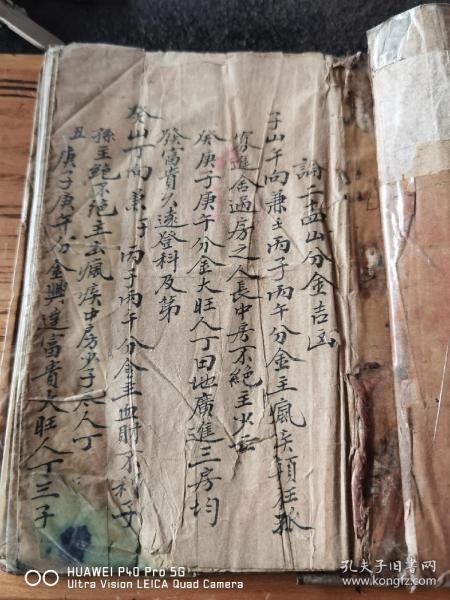 論二十四山分金吉凶
子山午向兼壬丙子丙午分金主瘋疾顛狂孤
寡進舍過房之人長中房不絕主少亡
癸庚子庚午分金大旺人丁田地廣進三房均
發富貴久遠登科及第
癸山丁向兼子丙子丙午分金主血財不利子
孫主絕不絕主出瘋疾中房少子人丁
丑庚子庚午分金興進富貴大旺人丁三子
HUAWEI P40 Pro 5G
Ultra Vision LEICA Quad Camera
孔夫子旧书网
www.kongfz.com